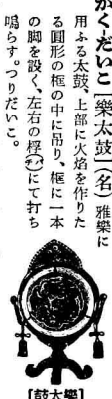 がく-だいこ【樂太鼓】(名) 雅樂に
用ふる太鼓、上部に火焰を作りた
る圓形の框の中に吊り、框に一本
の脚を設く、左右の桴(バチ)にて打ち
鳴らす。つりだいこ。
[鼓太樂]